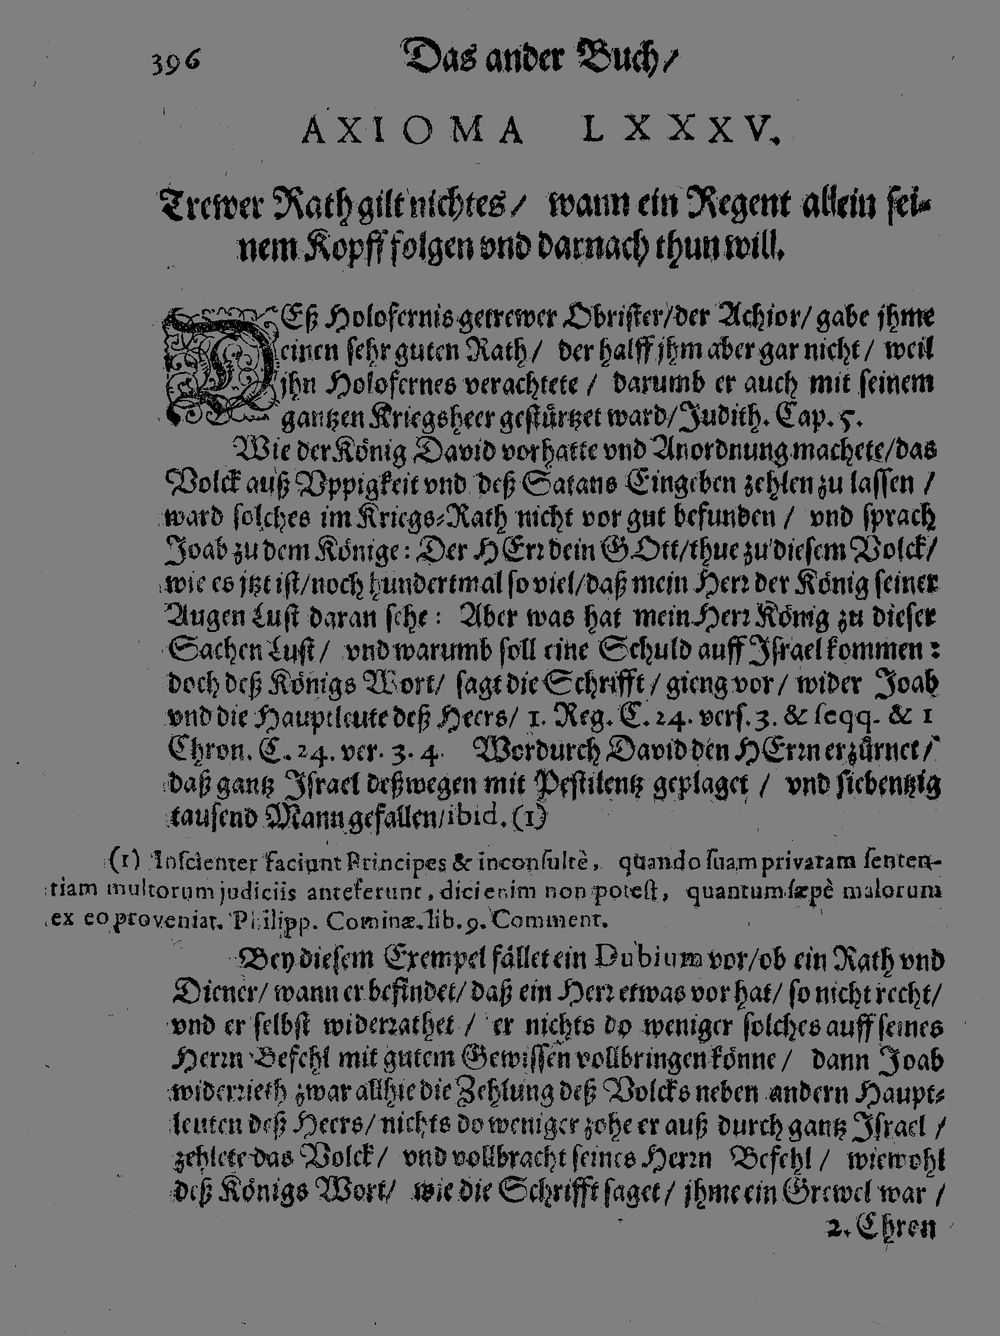 396 Das ander Buch/
AXIOMA LXXXV.
Trewer Rath gilt nichtes/ wann ein Regent allein sei-
nem Kopff folgen vnd darnach thun will.
DEß Holofernis getrewer Obrister/der Achior/ gabe jhme
einen sehr guten Rath/ der halff jhm aber gar nicht/ weil
jhn Holofernes verachtete / darumb er auch mit seinem
gantzen Kriegsheer gestürtzet ward/Judith. Cap. 5.
Wie der König David vorhatte vnd Anordnung machete/das
Volck auß Vppigkeit vnd deß Satans Eingeben zehlen zu lassen /
ward solches im Kriegs-Rath nicht vor gut befunden / vnd sprach
Joab zu dem Könige: Der HErr dein GOtt/thue zu diesem Volck/
wie es jtzt ist/noch hundertmal so viel/daß mein Herr der König seiner
Augen Lust daran sehe: Aber was hat mein Herr König zu dieser
Sachen Lust/ vnd warumb soll eine Schuld auff Israel kommen:
doch deß Königs Wort/ sagt die Schrifft / gieng vor / wider Joab
vnd die Hauptleute deß Heers/ 1. Reg. C. 24. vers. 3. & seqq. & 1
Chron. C. 24. ver. 3. 4. Wordurch David den HErrn erzürnet/
daß gantz Israel deßwegen mit Pestilentz geplaget / vnd siebentzig
tausend Mann gefallen/ibid. (1)
(1) Inscienter faciunt Principes & inconsultè, quando suam privatam senten-
tiam multorum judiciis anteferunt, dici enim non potest, quantum sæpè malorum
ex eo proveniat. Philipp. Cominæ. lib. 9. Comment.
Bey diesem Exempel fället ein Dubium vor/ob ein Rath vnd
Diener/ wann er befindet/ daß ein Herr etwas vor hat/ so nicht recht/
vnd er selbst widerrathet / er nichts do weniger solches auff seines
Herrn Befehl mit gutem Gewissen vollbringen könne / dann Joab
widerrieth zwar allhie die Zehlung deß Volcks neben andern Haupt-
leuten deß Heers / nichts do weniger zohe er auß durch gantz Israel /
zehlete das Volck/ vnd vollbracht seines Herrn Befehl / wiewohl
deß Königs Wort/ wie die Schrifft saget/ jhme ein Grewel war /
2. Chron